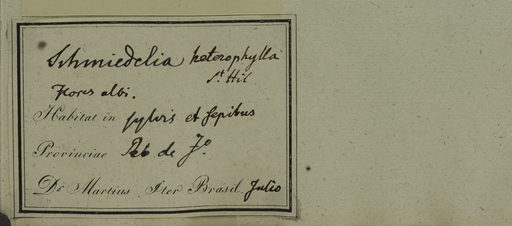 Schmiedelia heterophylla
St Hil
Flores albi.
Habitat in sylvis et sepibus
Provinciae de Jo.
Dr. Martius Iter Brasil. Julio